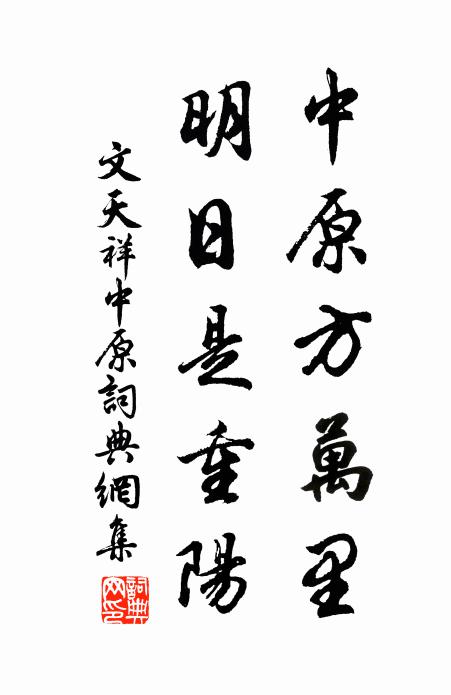 中原方萬里
明日是重陽
文天祥中原詞典網集
詞典網印